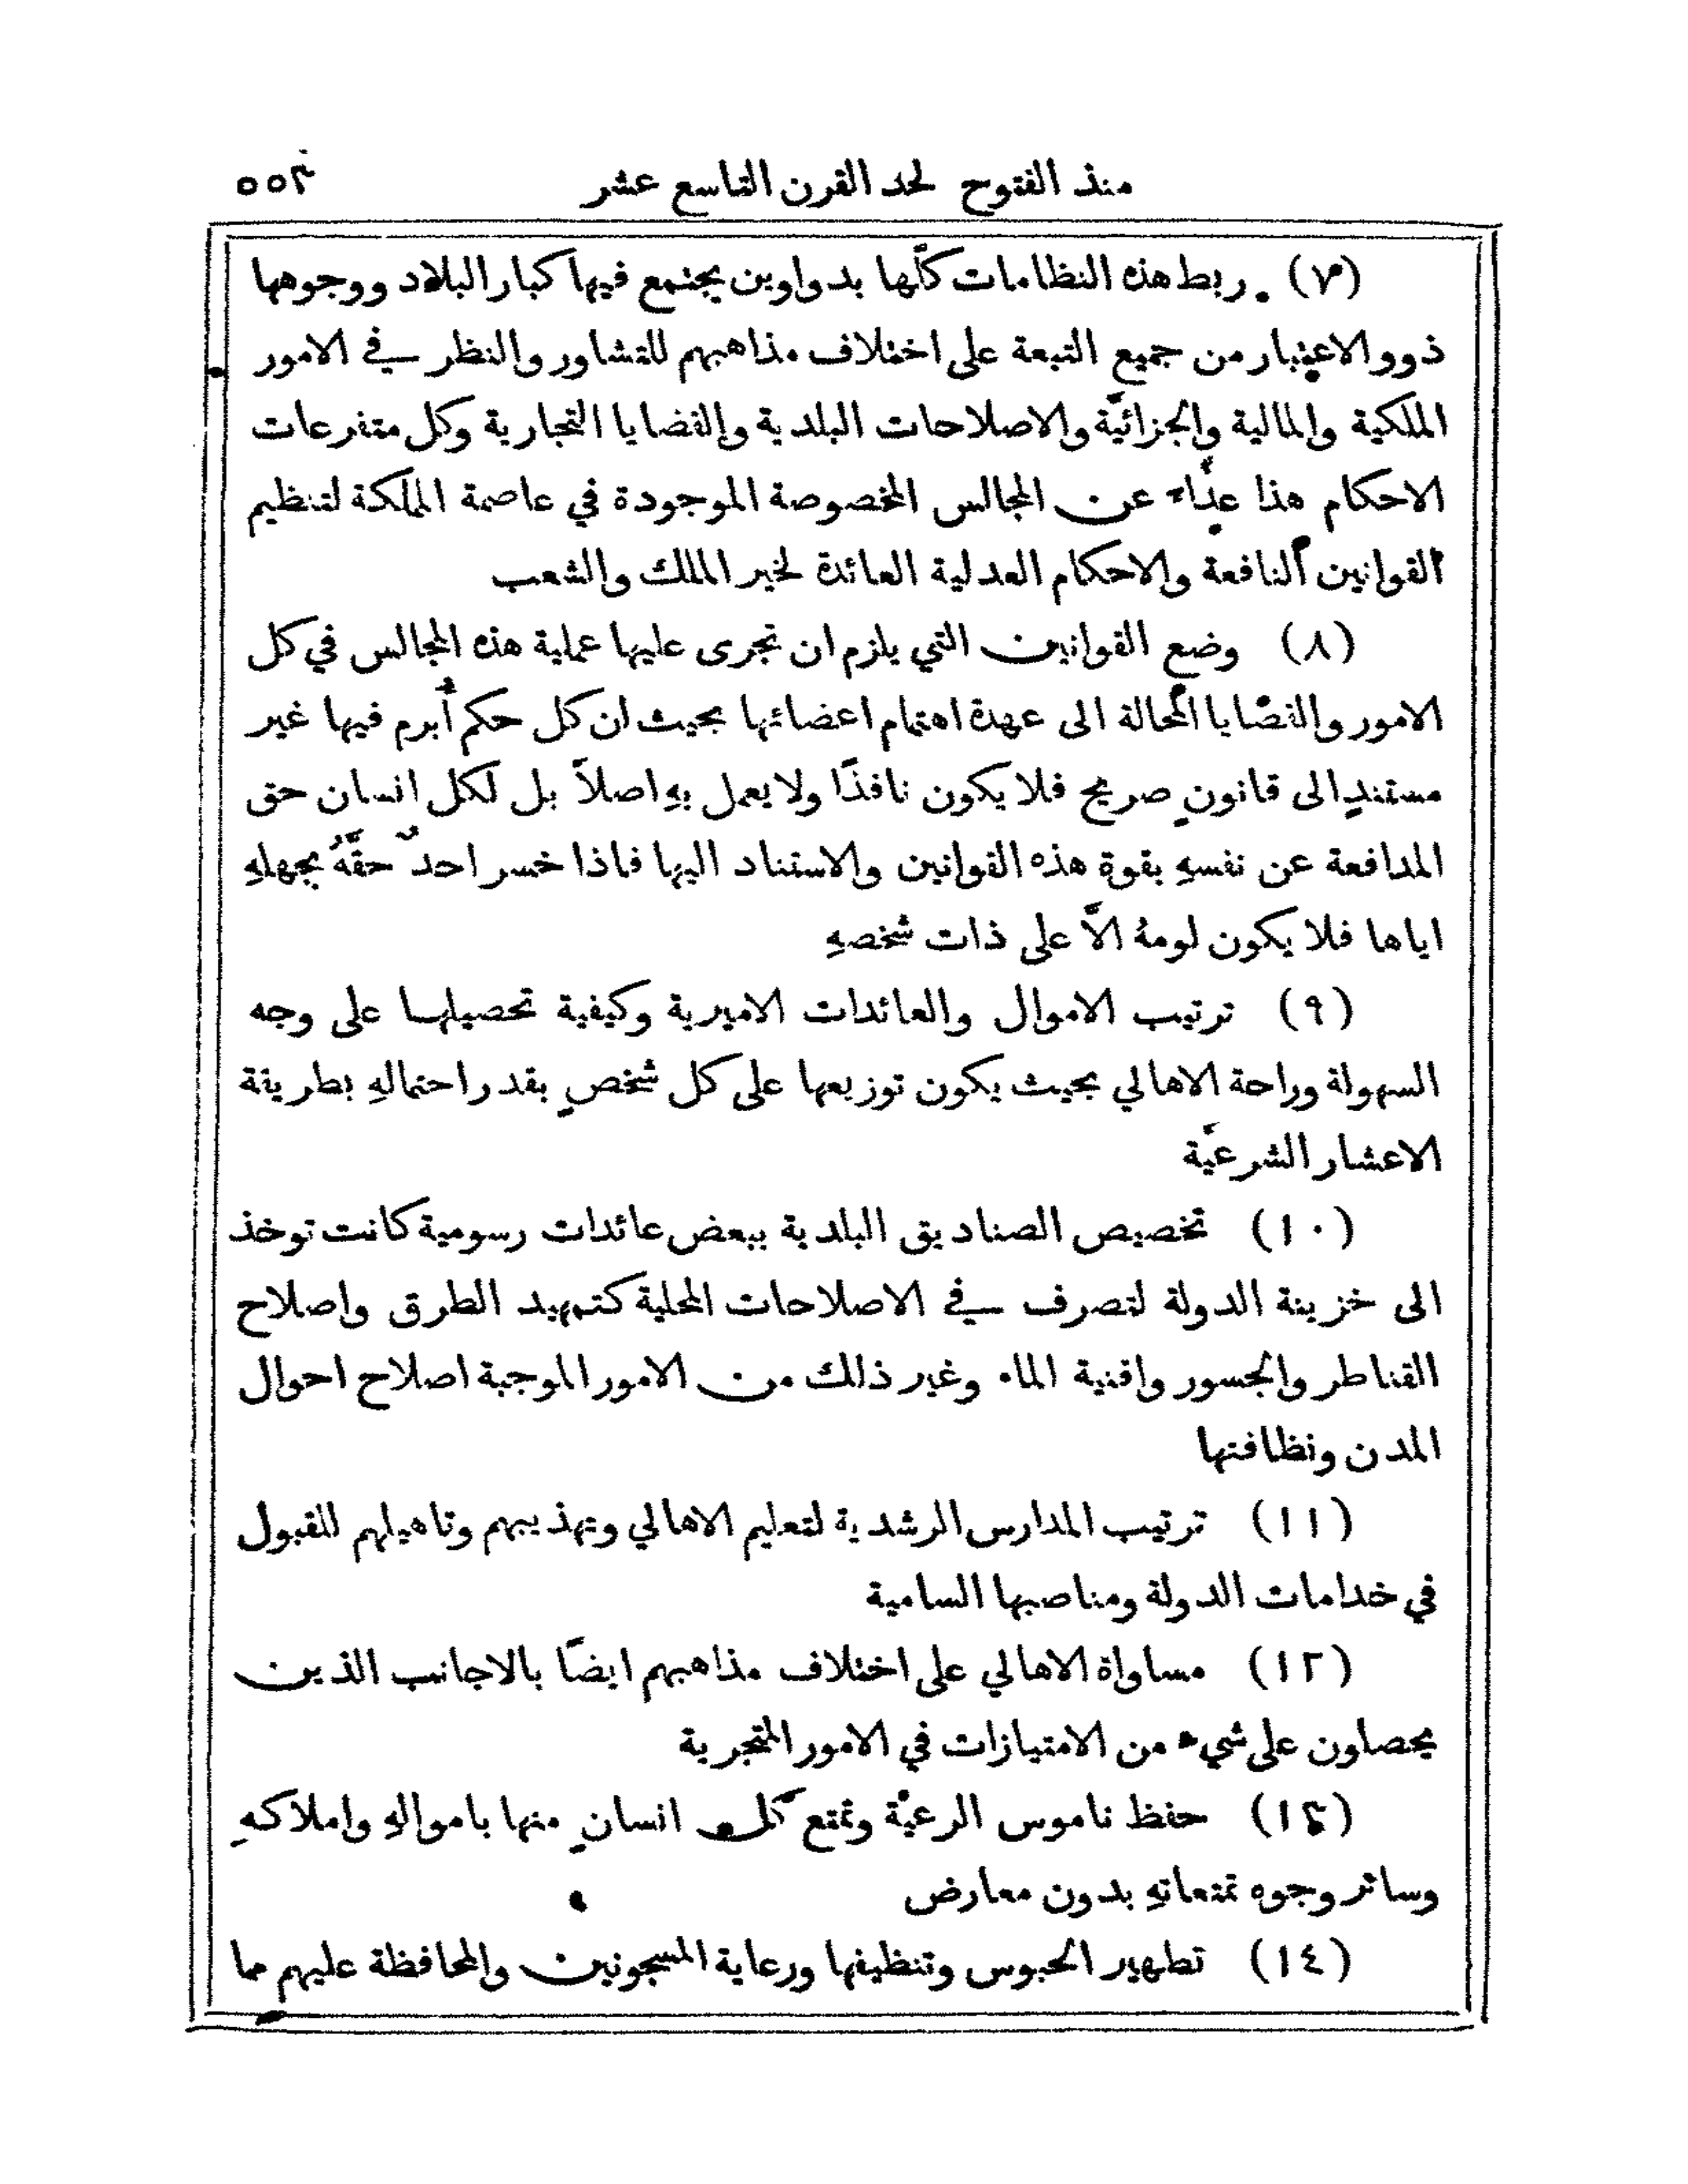 منذ الفتوح لحد القرن التاسع عشر ٥٥٣
(٧) ربط هذه النظامات كلّها بدواوين يجتمع فيها كبار البلاد ووجوهها
ذوو الاعتبار من جميع التبعة على اختلاف مذاهبهم للتشاور والنظر في الامور
الملكية والمالية والجزائيّة والاصلاحات البلدية والقضايا التجارية وكل متفرعات
الاحكام هذا عداء عن المجالس المخصوصة الموجودة في عاصمة المملكة لتنظيم
القوانين النافعة والاحكام العدلية العائدة لخير الملك والشعب
(٨) وضع القوانين التي يلزم ان تجرى عليها عملية هذه المجالس في كل
الامور والقضايا المُحالة الى عهدة اهتمام اعضائها بحيث ان كل حكم أُبرم فيها غير
مستندٍ الى قانونٍ صريح فلا يكون نافذًا ولا يعمل بهِ اصلاً بل لكل انسان حق
المدافعة عن نفسهِ بقوة هذه القوانين والاستناد اليها فاذا خسر احدٌ حقَّهُ بجهلهِ
اياها فلا يكون لومهُ الاَّ على ذات شخصهِ
(٩) ترتيب الاموال والعائدات الاميرية وكيفية تحصيلها على وجه
السهولة وراحة الاهالي بحيث يكون توزيعها على كل شخصٍ بقدر احتمالهِ بطريقة
الاعشار الشرعيَّة
(١٠) تخصيص الصناديق البلدية ببعض عائدات رسومية كانت توخذ
الى خزينة الدولة لتصرف في الاصلاحات المحلية كتمهيد الطرق واصلاح
القناطر والجسور واقنية الماء وغير ذلك من الامور الموجبة اصلاح احوال
المدن ونظافتها
(١١) ترتيب المدارس الرشدية لتعليم الاهالي وتهذيبهم وتاهيلهم للقبول
في خدامات الدولة ومناصبها السامية
(١٢) مساواة الاهالي على اختلاف مذاهبهم ايضًا بالاجانب الذين
يحصلون على شيء من الامتيازات في الامور المتجرية
(١٣) حفظ ناموس الرعيَّة وتمتع كل انسانٍ منها باموالهِ واملاكهِ
وسائر وجوه تمتعاتهِ بدون معارض
(١٤) تطهير الحبوس وتنظيفها ورعاية المسجونين والمحافظة عليهم مما